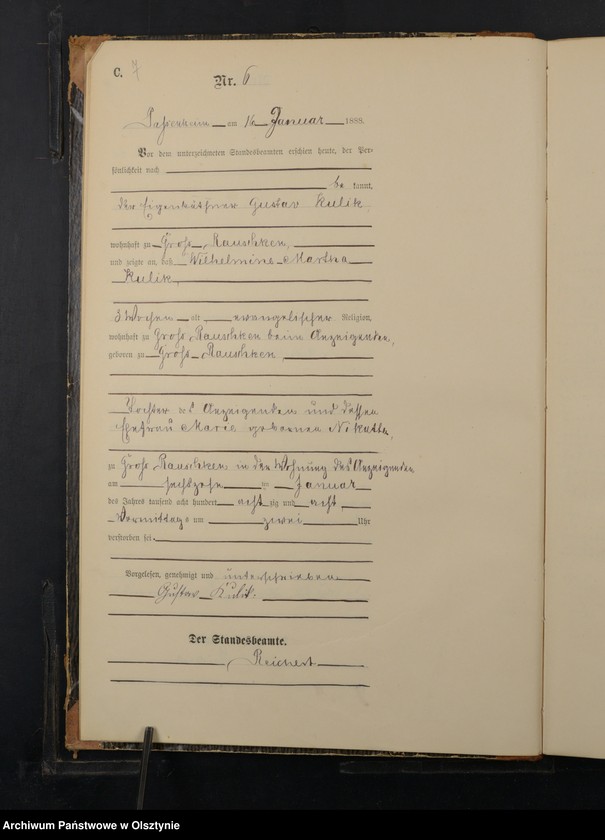 C. 7
Nr. 6
Passenheim am 16 Januar 1888.
Vor dem unterzeichneten Standesbeamten erschien heute, der Per-
sönlichkeit nach
be kannt,
der Eigenkäthner Gustav Kulik
wohnhaft zu Groß Rauschken,
und zeigte an, daß Wilhelmine Martha
Kulik,
3 Wochen alt evangelischer Religion,
wohnhaft zu Groß Rauschken beim Anzeigenden,
geboren zu Groß Rauschken,
Tochter des Anzeigenden und dessen
Ehefrau Marie geborenen
zu Groß Rauschken in der Wohnung des Anzeigenden
am sechszehn Januar
des Jahres tausend acht hundert acht zig und acht
Vormittags um zwei Uhr
verstorben sei.
Vorgelesen, genehmigt und unterschrieben
Gustav Kulik.
Der Standesbeamte.
Reichert
Archiwum Państwowe w Olsztynie